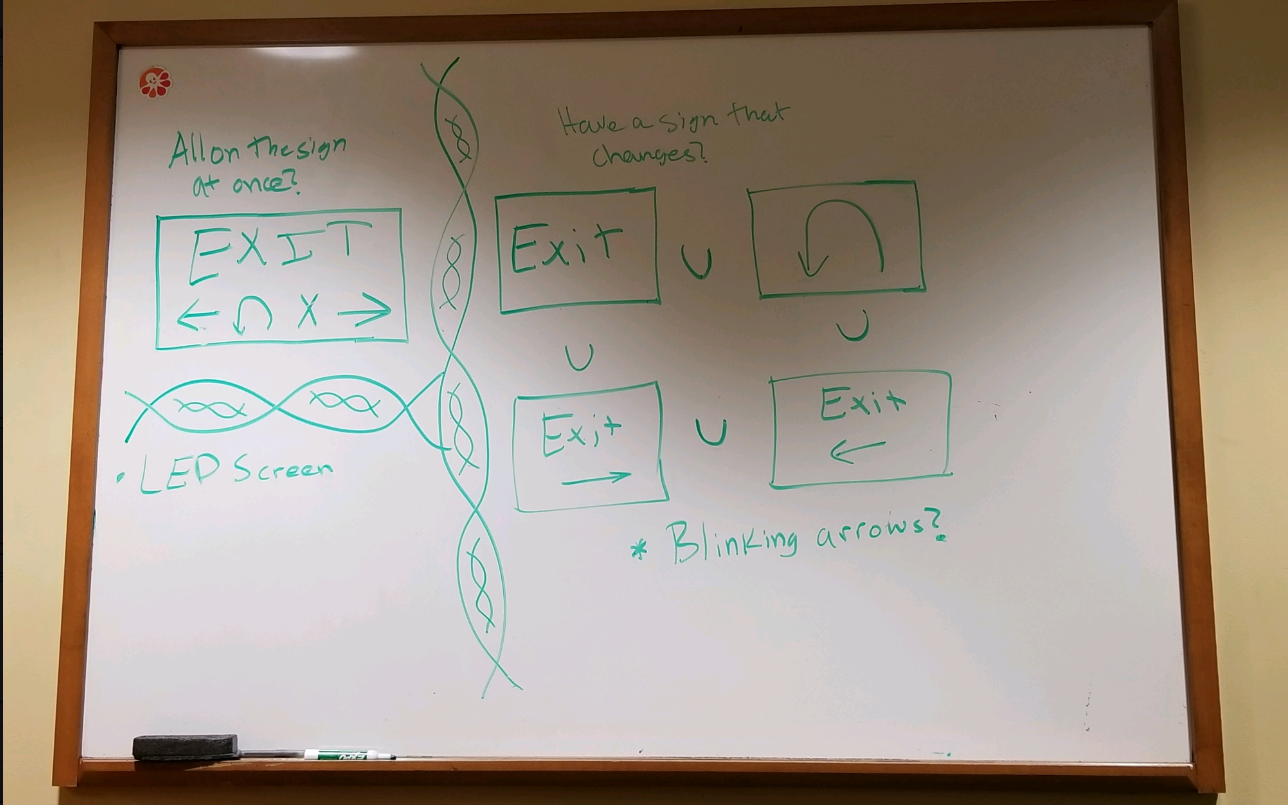 All on the sign
at once?
EXIT
← ↶ X →
• LED Screen
Have a sign that
changes?
Exit ∪ ↶
∪ ∪
Exit ∪ Exit
→ ←
* Blinking arrows?
EXPO